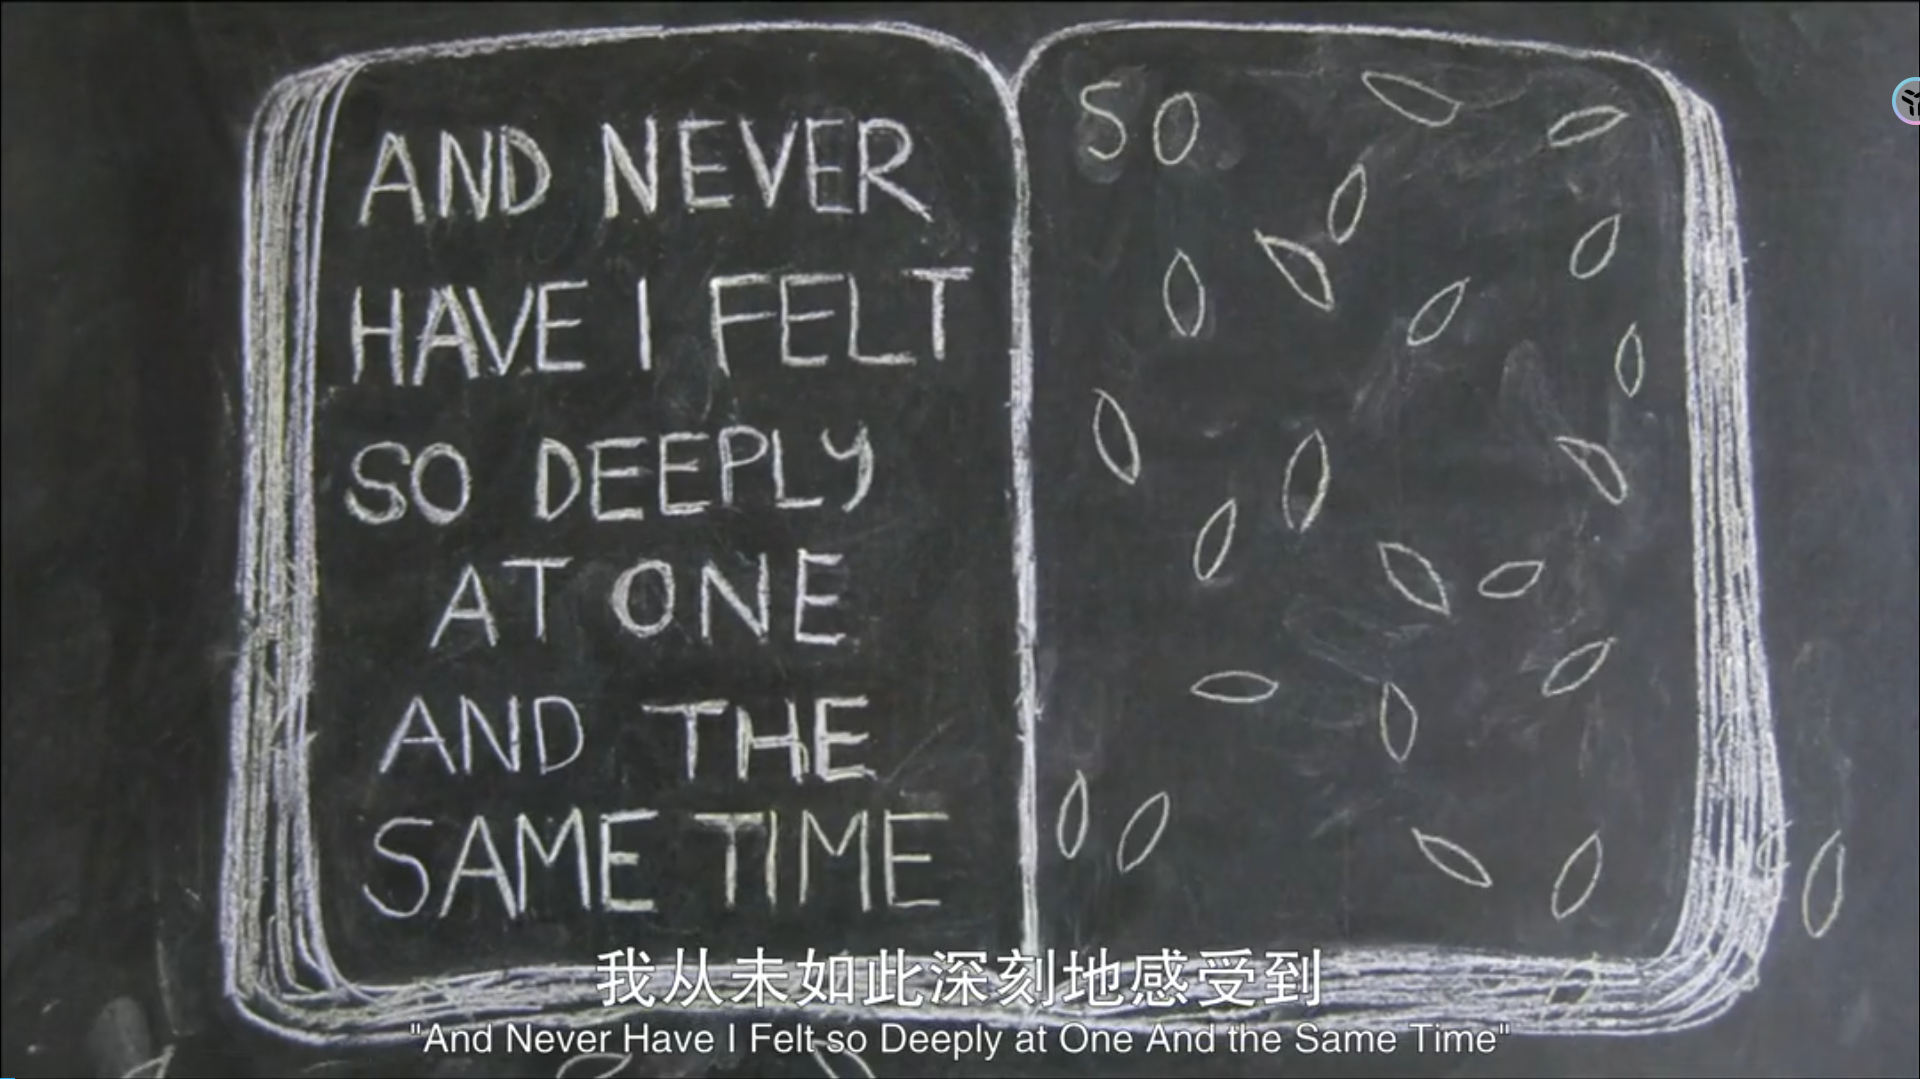 AND NEVER
HAVE I FELT
SO DEEPLY
AT ONE
AND THE
SAME TIME
SO
我从未如此深刻地感受到
"And Never Have I Felt so Deeply at One And the Same Time"